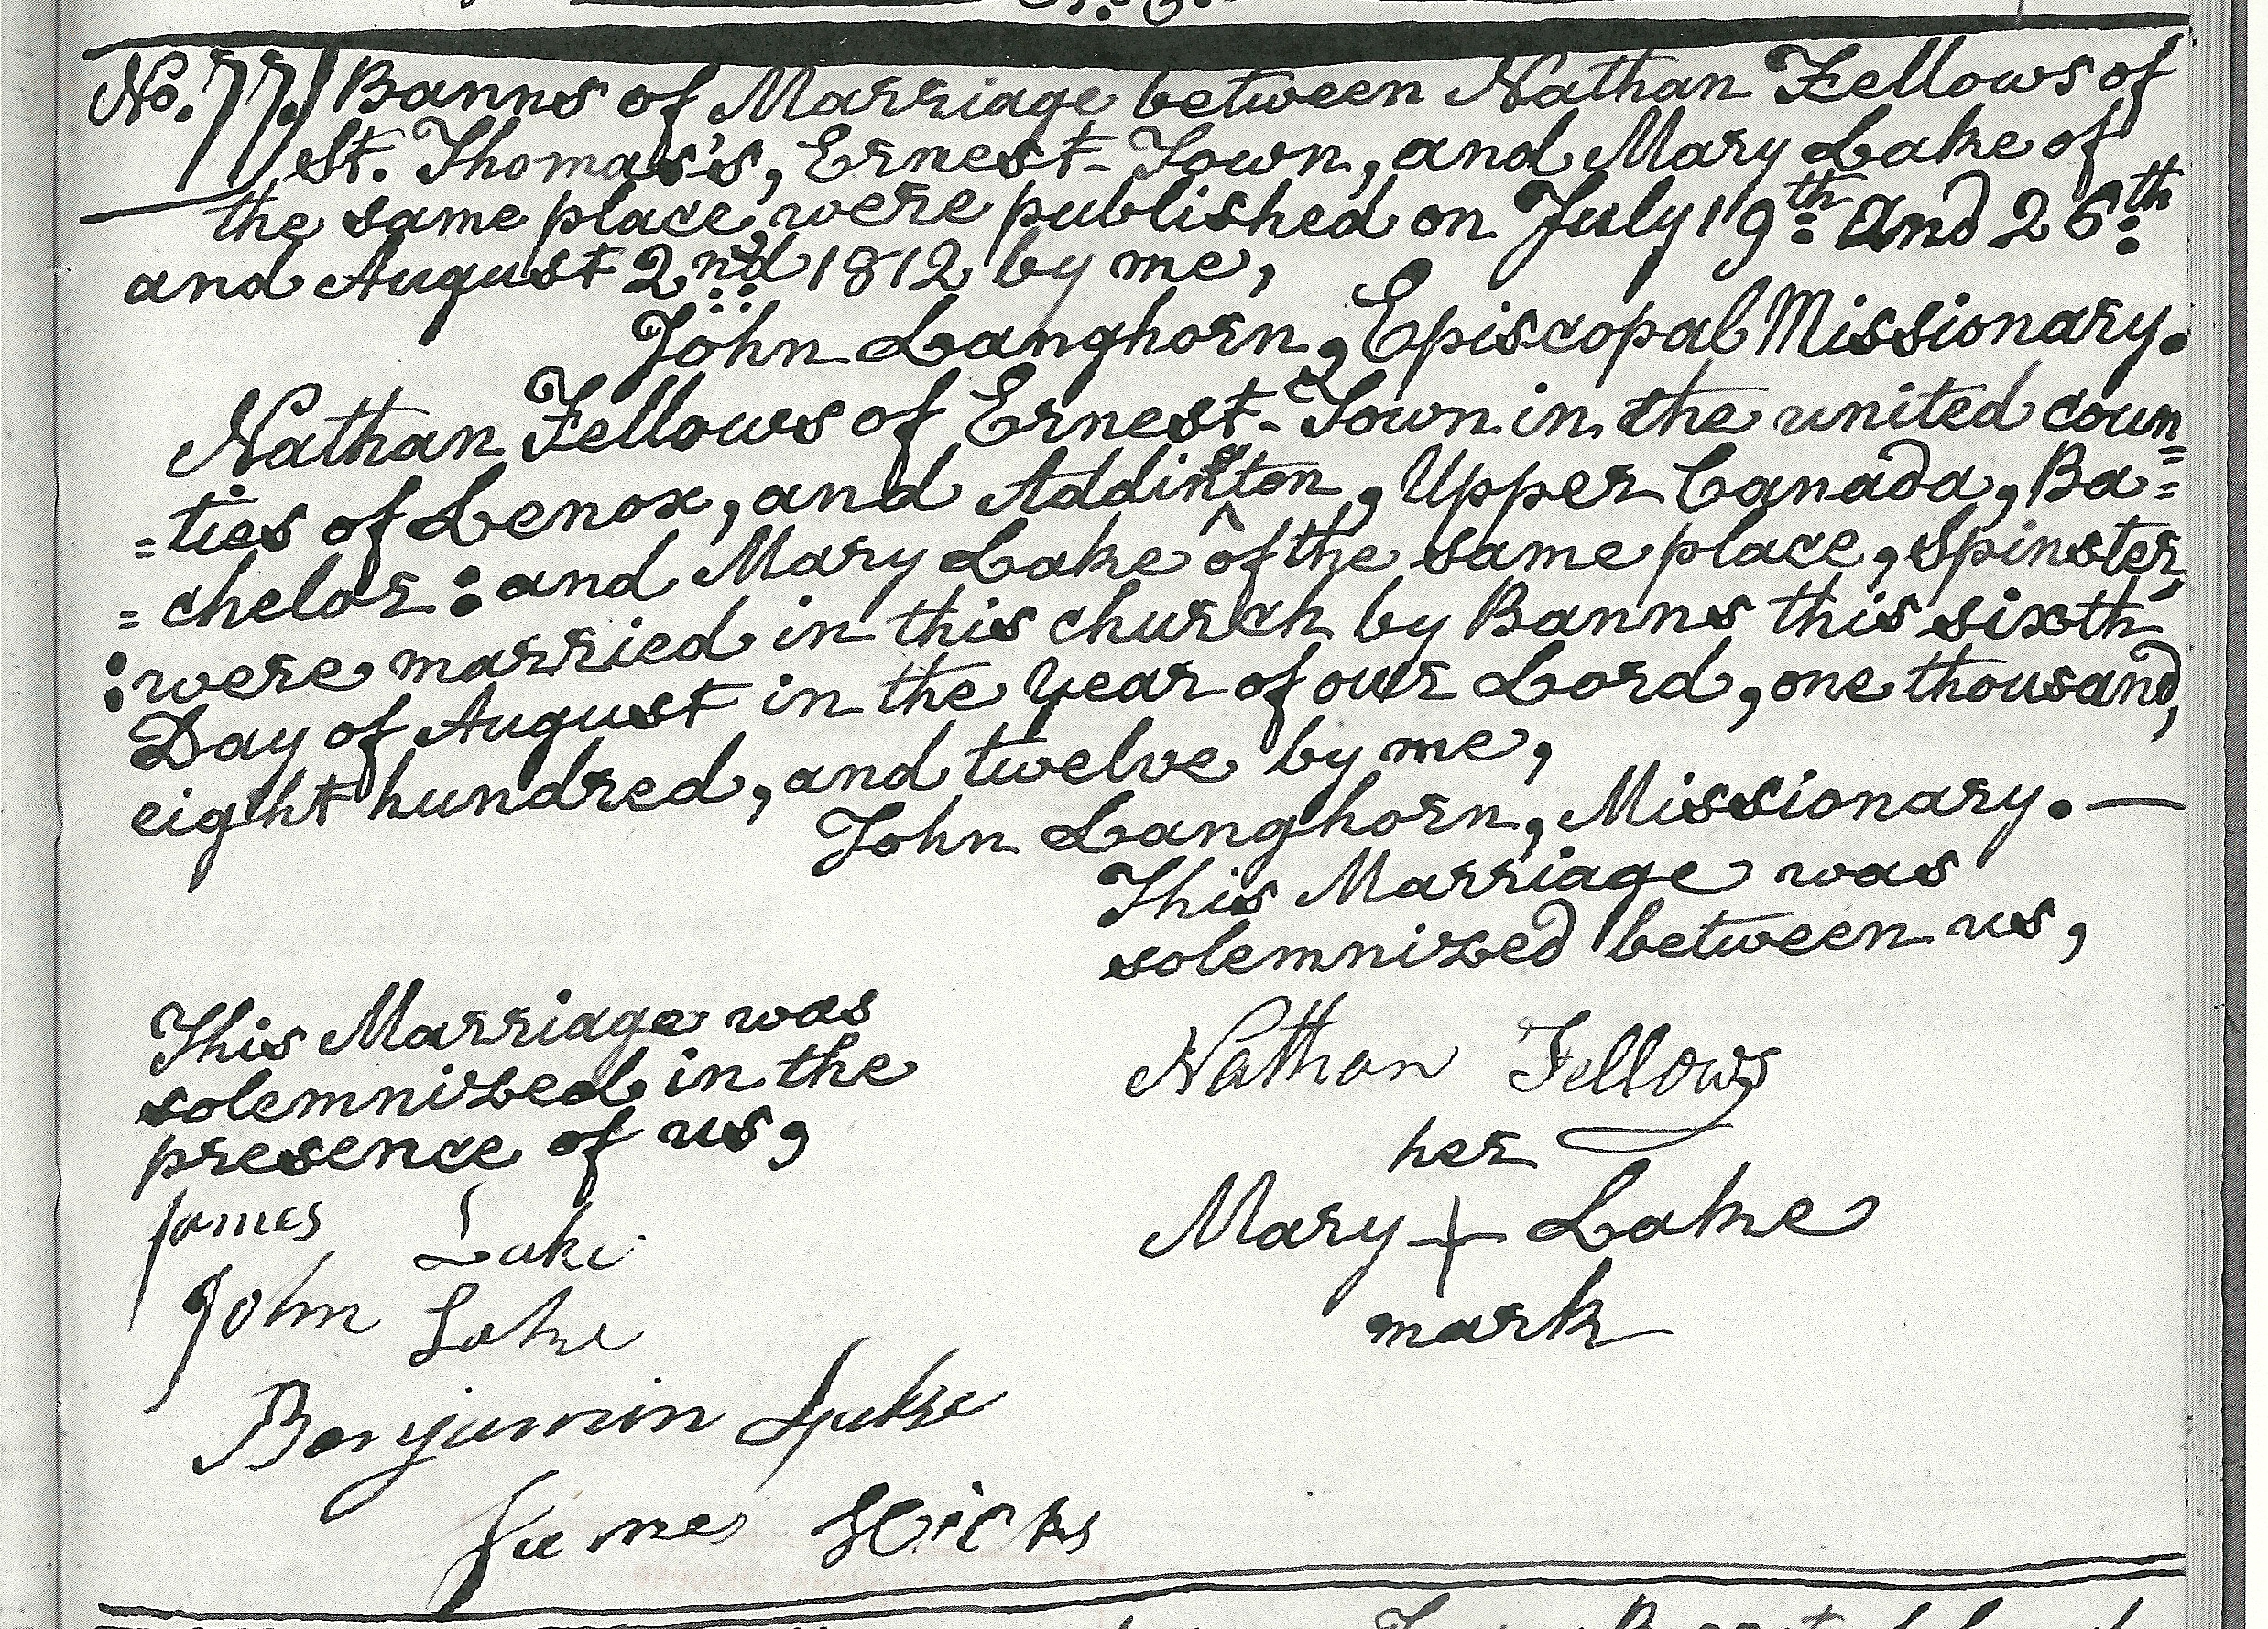 No. 77. Banns of Marriage between Nathan Fellows of
St. Thomas's, Ernest-Town, and Mary Lake of
the same place, were published on July 19th and 26th
and August 2nd 1812 by me,
John Langhorn, Episcopal Missionary.
Nathan Fellows of Ernest-Town in the united coun=
=ties of Lenox, and Addington, Upper Canada, Ba=
=chelor: and Mary Lake of the same place, Spinster,
:were married in this church by Banns this sixth
Day of August in the Year of our Lord, one thousand,
eight hundred, and twelve by me,
John Langhorn, Missionary.—
This Marriage was
solemnized between us,
Nathan Fellows
her
Mary + Lake
mark
This Marriage was
solemnized in the
presence of us,
James Lake
John Lake
Benjamin Lake
James Hicks